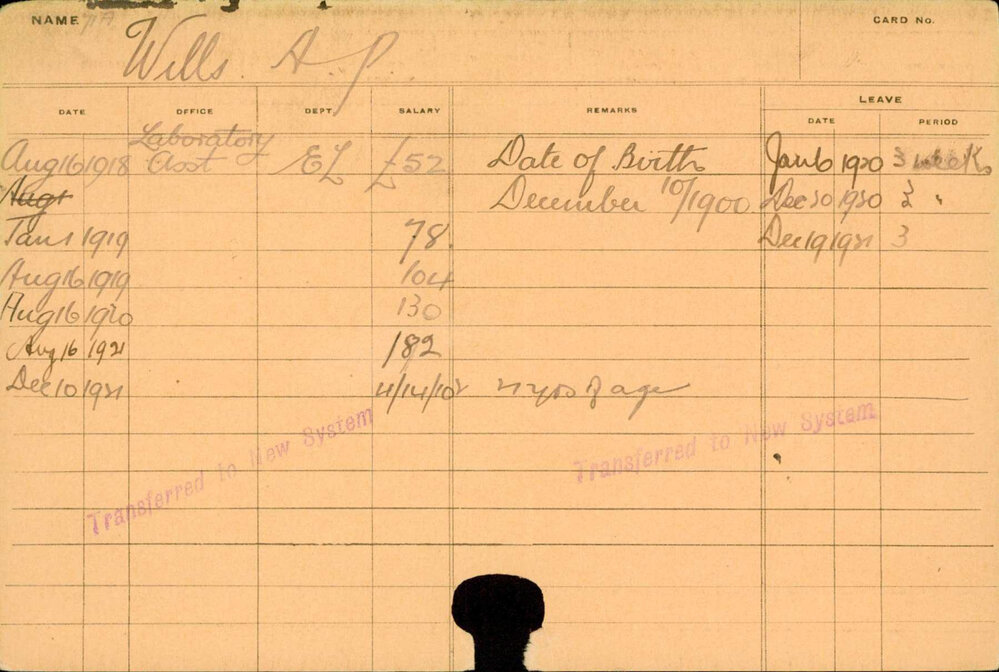 NAME Wills. A. J. CARD No.
DATE OFFICE DEPT. SALARY REMARKS LEAVE
DATE PERIOD
Laboratory
Aug 16 1918 Asst EL £52 Date of Birth Jan 6 1920 3 weeks
Aug 1 December 10/1900 Dec 20 1920 "
Jan 1 1919 78. Dec 19 1921 3
Aug 16 1919 104
Aug 16 1920 130
Aug 16 1921 182
Dec 10 1921 4/14/10½ 21 yrs of age
Transferred to New System Transferred to New System